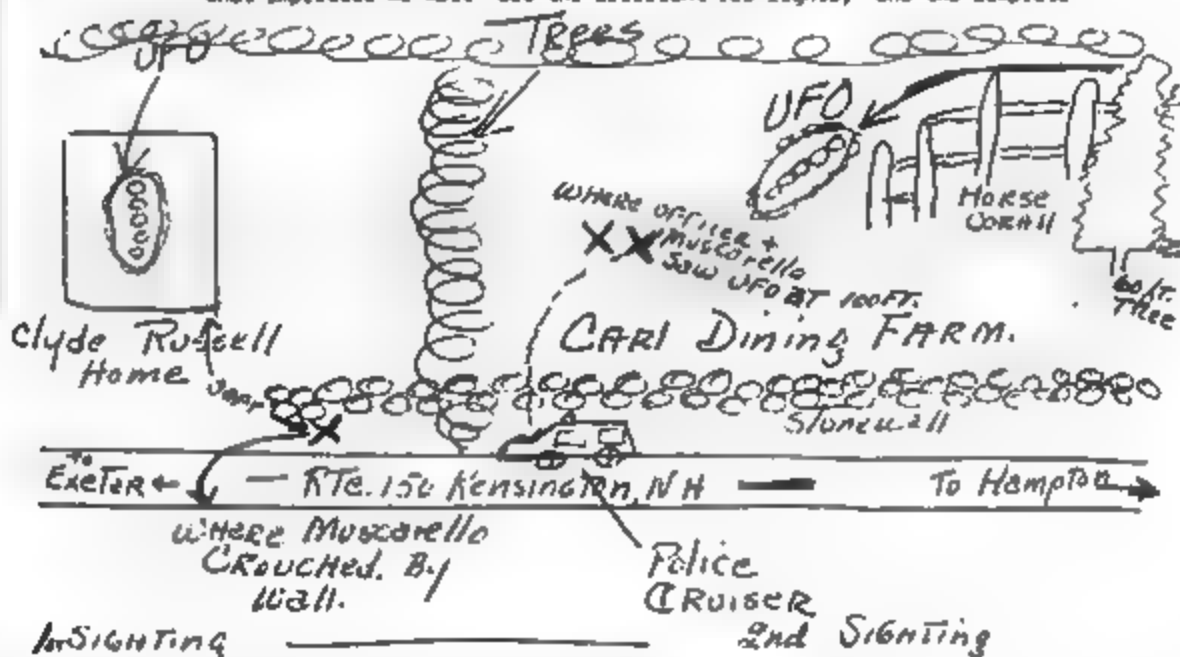 UFO
Trees
UFO
HORSE
CORAll
60 FT.
TREE
WHERE OFFICER +
Muscarello
SAW UFO AT 100 FT.
Clyde Russell
Home
CARl Dining FARM.
Stonewall
To
EXETER
RTE. 150 Kensington, NH
To Hampton
WHERE Muscarello
CROUCHED. By
Wall.
Police
CRUISER
1st SIGHTING
2nd SIGHTING